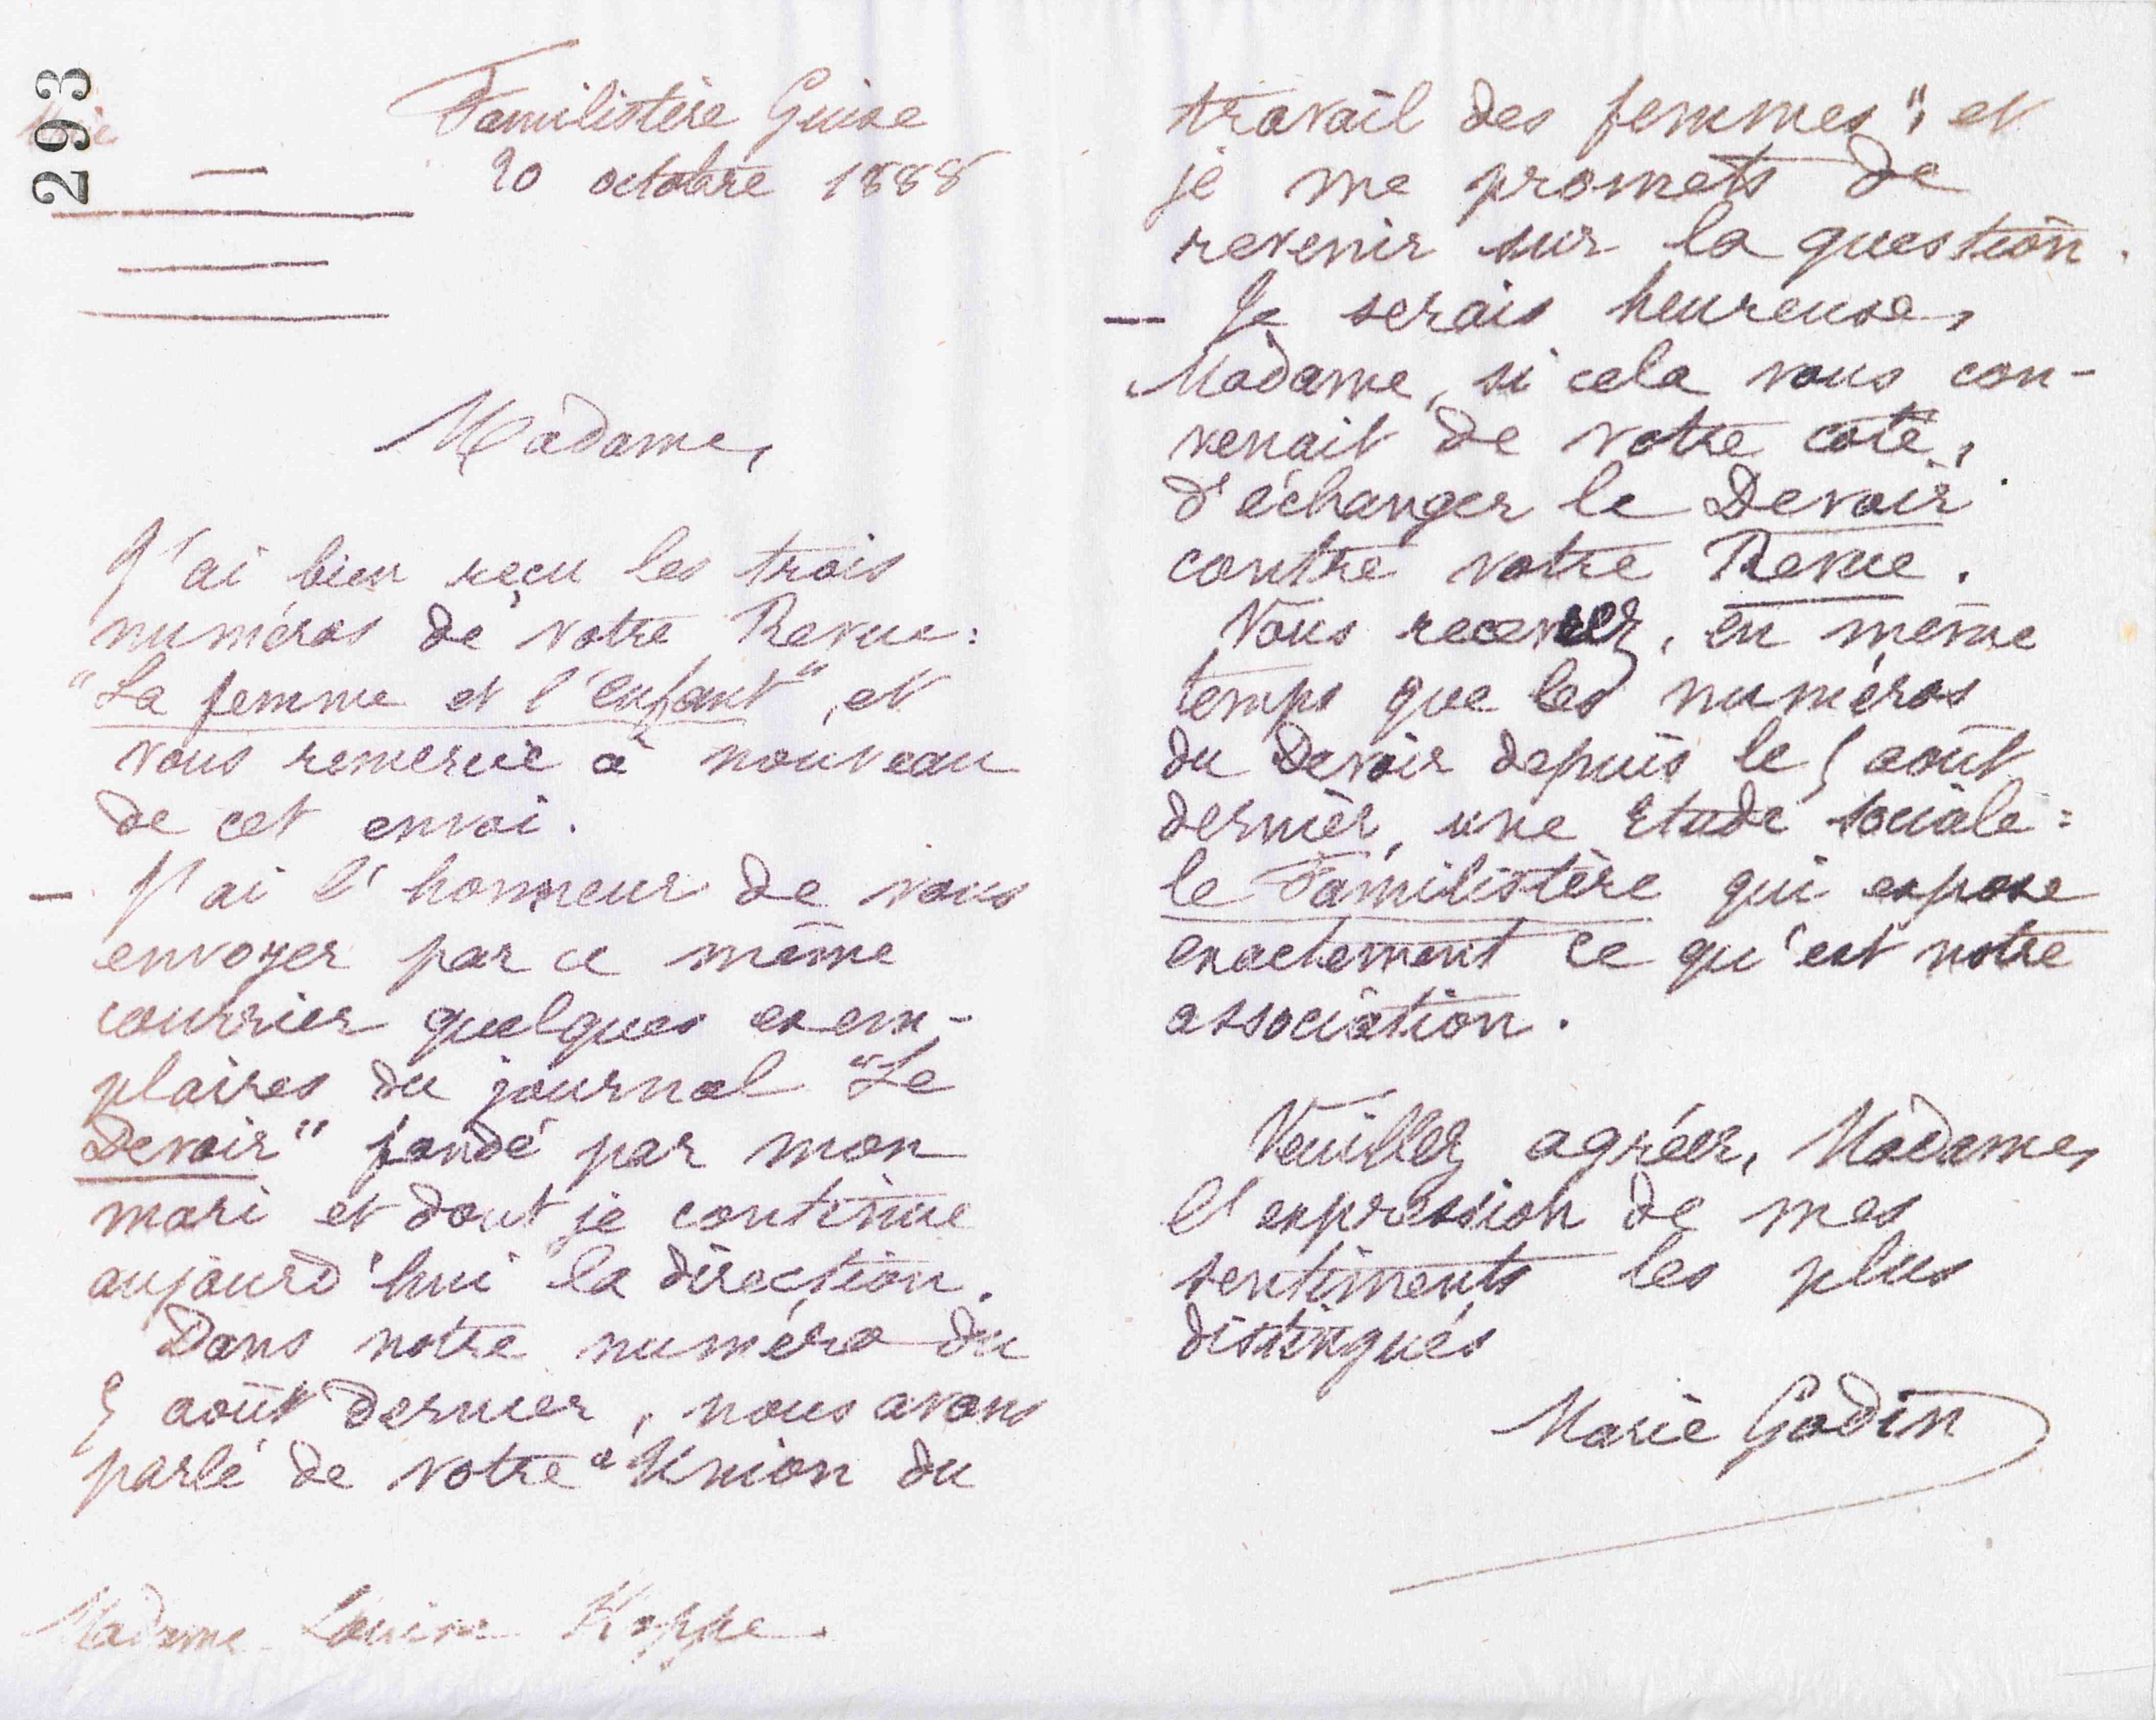 293
Familistère Guise
20 octobre 1888
Madame,
J'ai bien reçu les trois
numéros de votre Revue:
"La femme et l'enfant", et
vous remercie à nouveau
de cet envoi.
— J'ai l'honneur de vous
envoyer par ce même
courrier quelques exem-
plaires du journal "Le
Devoir" fondé par mon
mari et dont je continue
aujourd'hui la direction.
Dans notre numéro du
5 août dernier, nous avons
parlé de votre "Union du
Madame Louise Koppe.
travail des femmes", et
je me promets de
revenir sur la question.
— Je serais heureuse,
Madame, si cela vous con-
venait de votre côté,
d'échanger le Devoir
contre votre Revue.
Vous recevrez, en même
temps que les numéros
du Devoir depuis le 5 août
dernier, une Etude sociale:
le Familistère qui expose
exactement ce qu'est notre
association.
Veuillez agréer, Madame,
l'expression de mes
sentiments les plus
distingués
Marie Godin